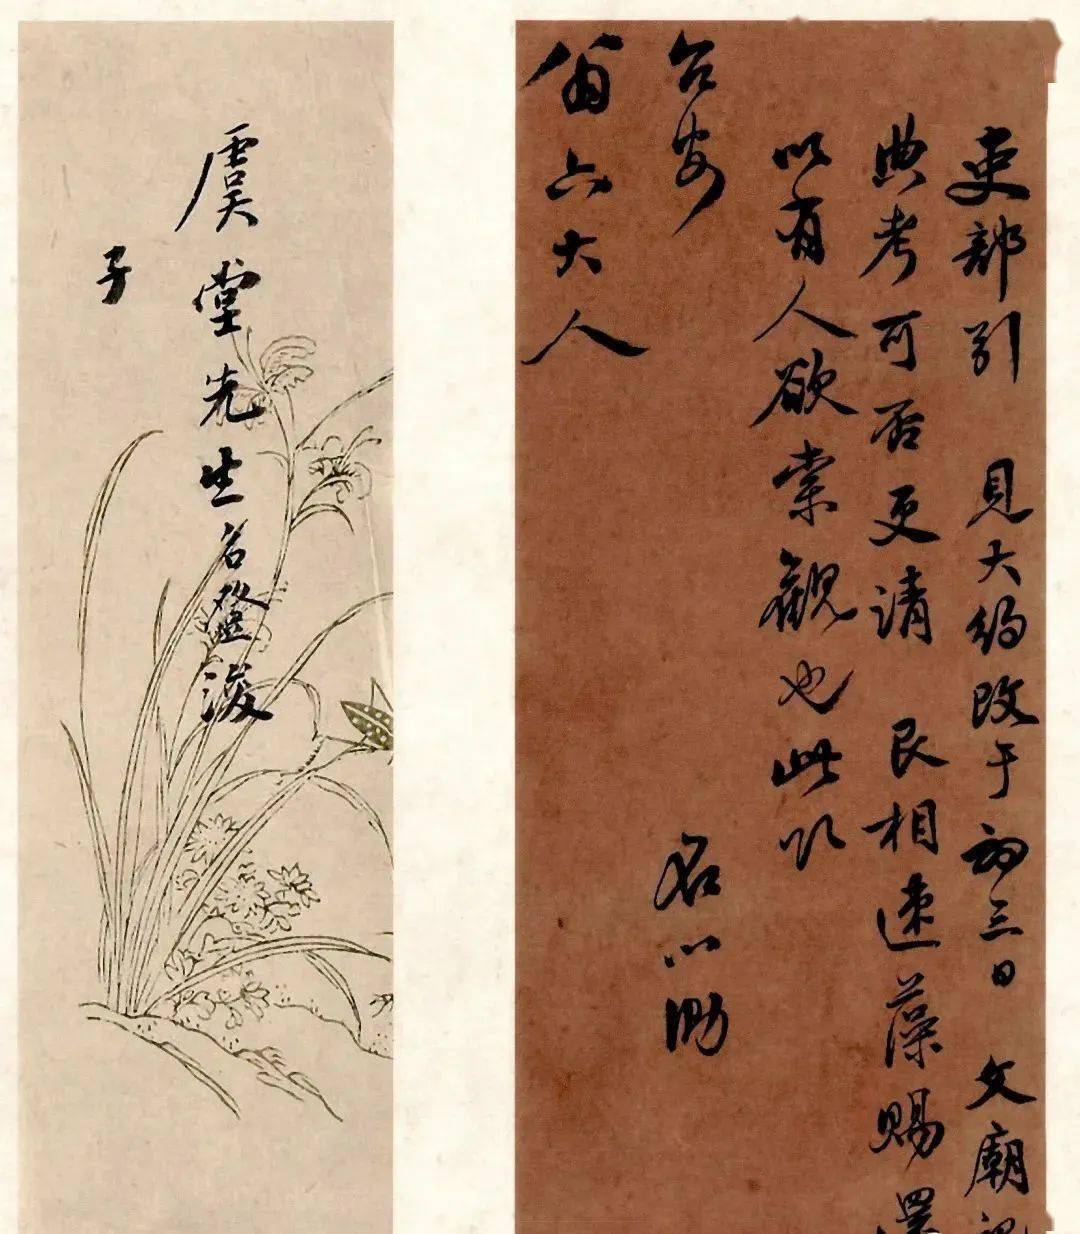 吏部引 見大約改于初三日 文廟
典考可否更請 良相速藻賜還
以有人欲索觀也此頌
台安 名心泐
翁六大人
虞堂先生名鎜浚
子